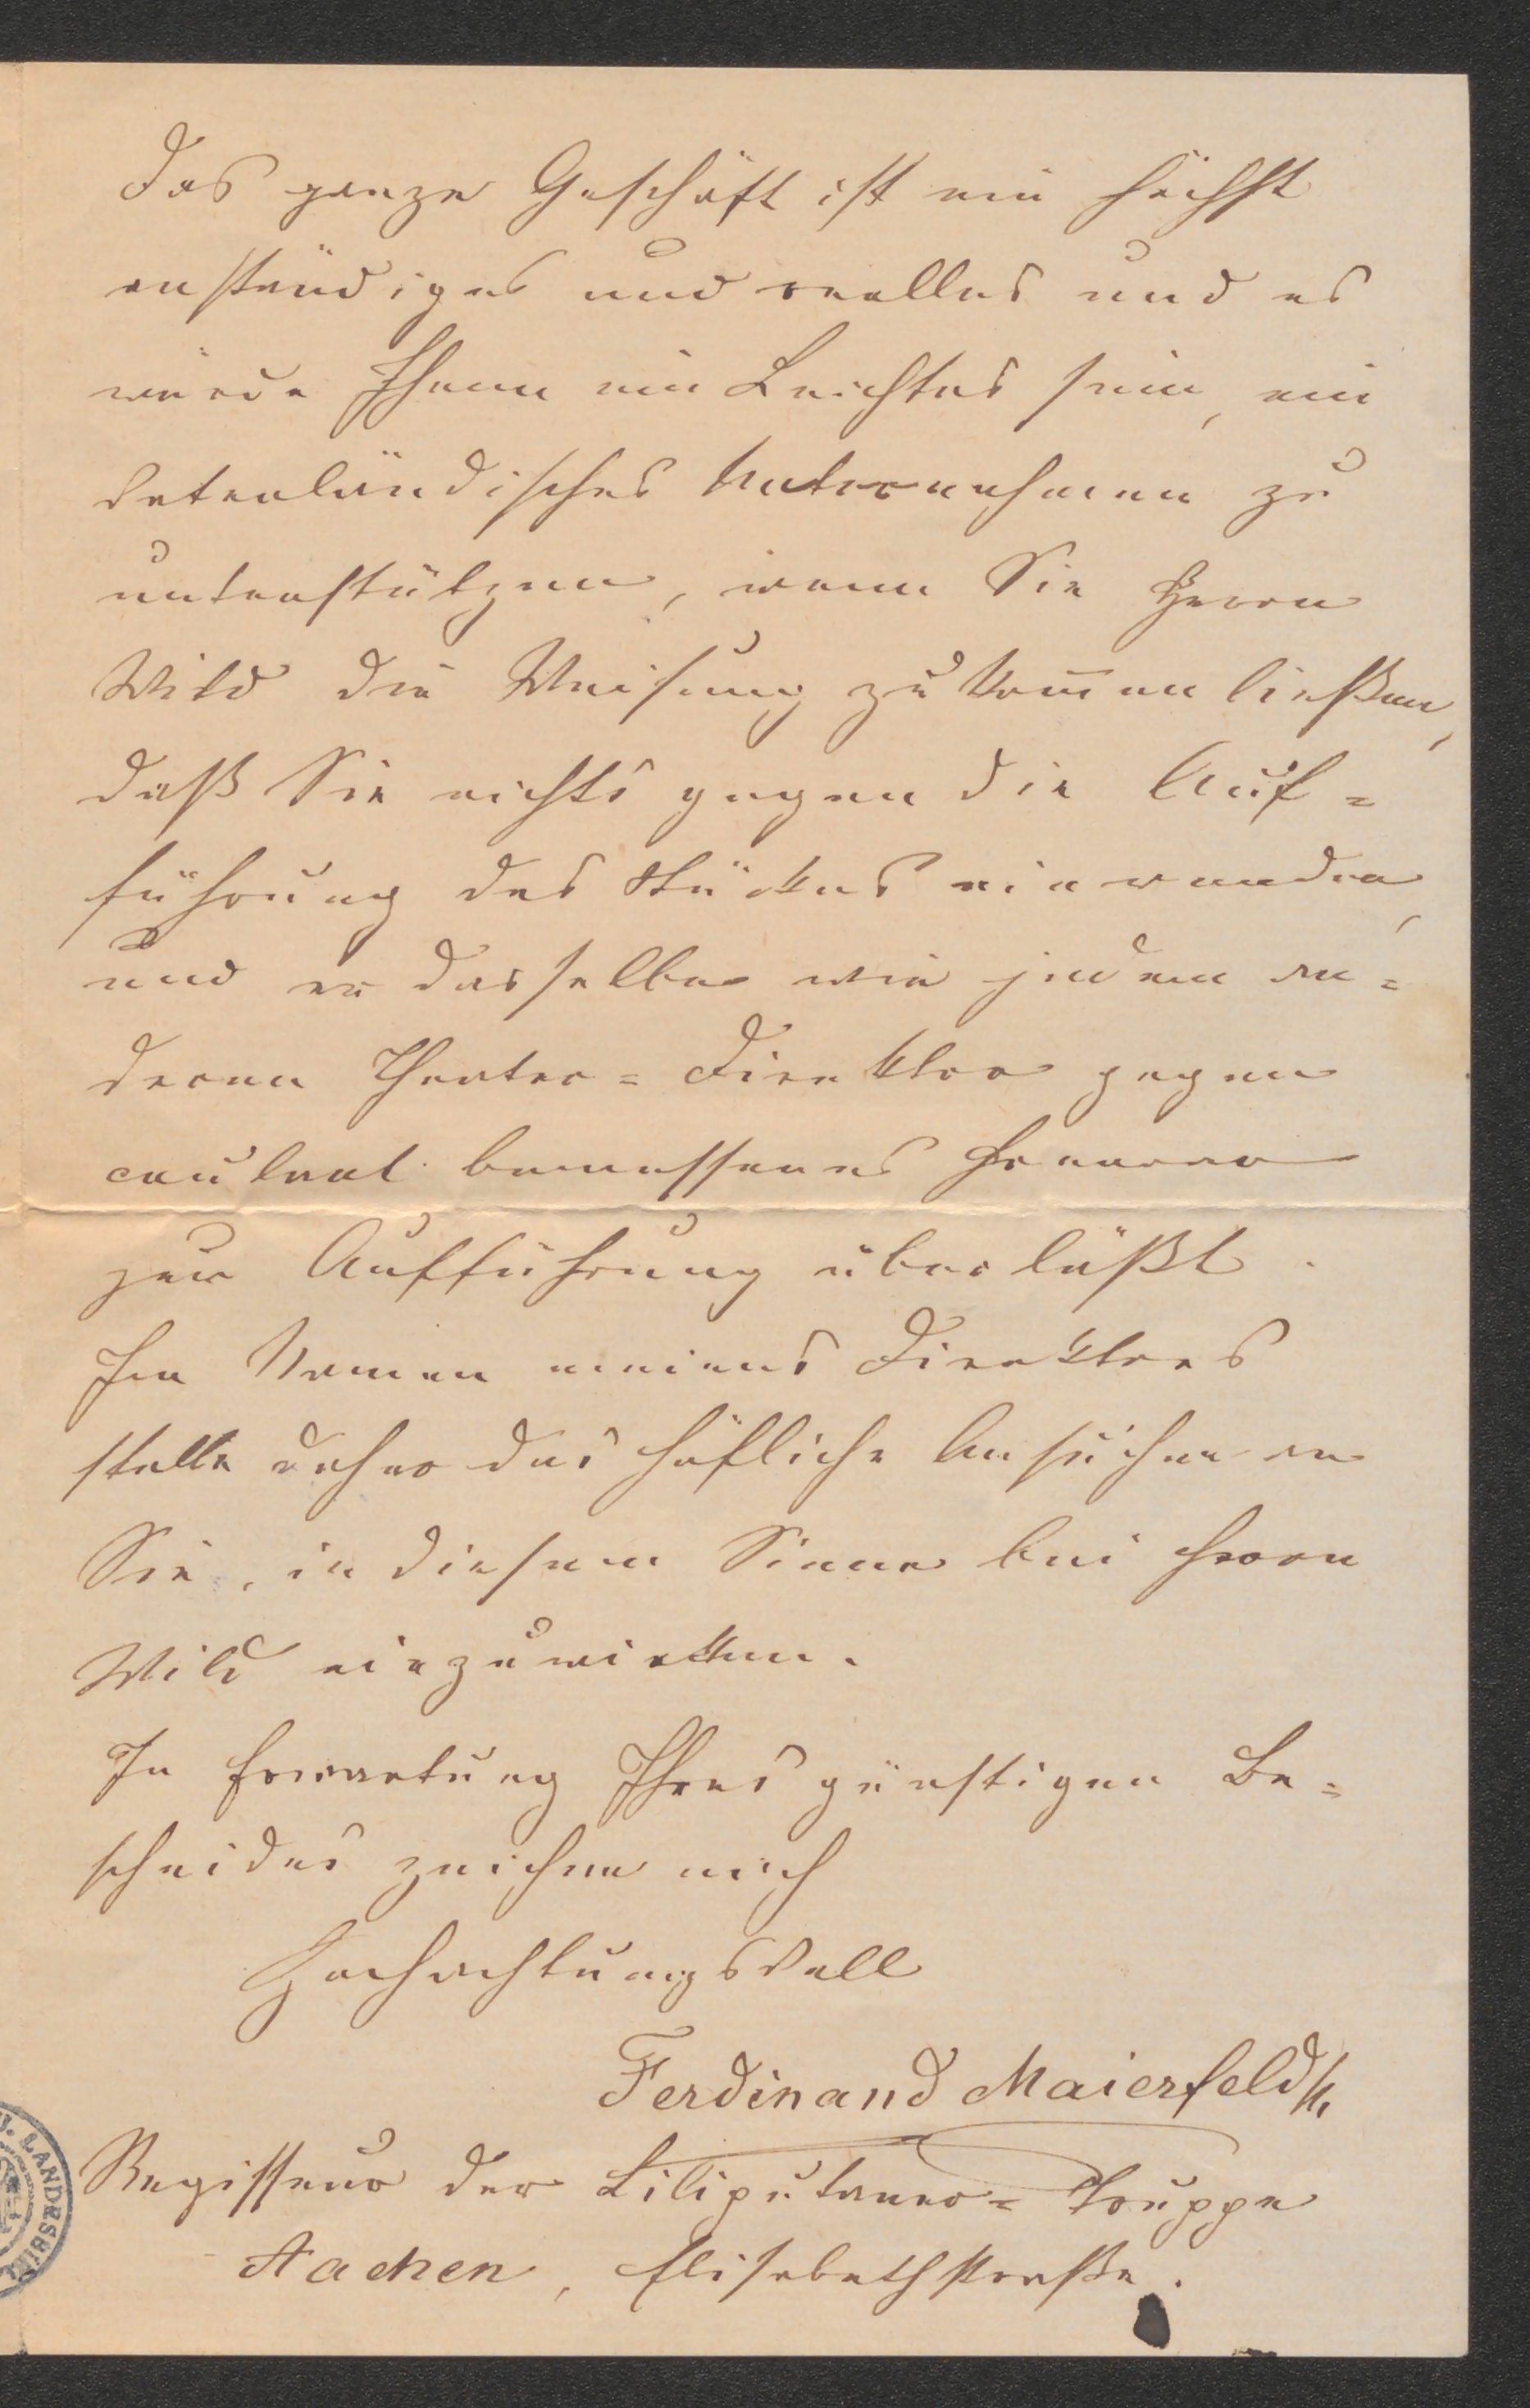 Das ganze Geschäft ist ein höchst
anständiges und reelles und es
würde Ihnen ein Leichtes sein, ein
vaterländisches Unternehmen zu
unterstützen, wenn Sie Herrn
Wild die Weisung zukom̄en ließen,
daß Sie nichts gegen die Auf=
führung des Stückes einwenden,
und er dasselbe wie jedem an=
deren Theater=Direktor gegen
coulant bemessenes Honorar
zur Aufführung überläßt.
Im Namen meines Direktors
stelle daher das höfliche Ansuchen an
Sie, in diesem Sinne bei Herrn
Wild einzuwirken.
In Erwartung Ihres günstigen Be=
scheides zeichne mich
Hochachtungsvoll
Ferdinand Maierfeld
Regisseur der Liliputaner=Truppe
Aachen, Elisabethstraße.
LANDESBIBL